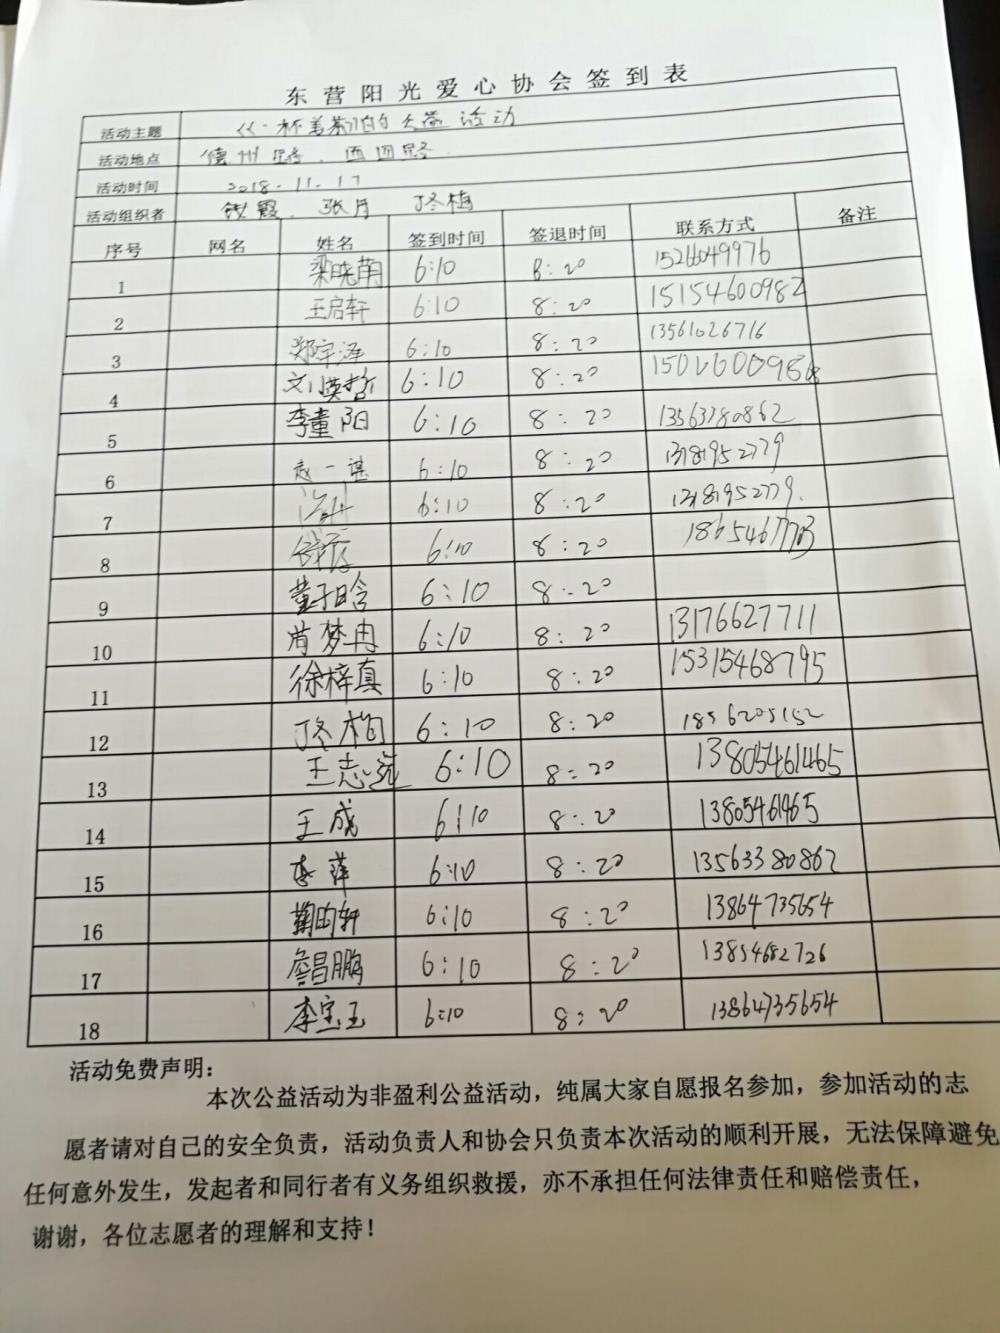 东营阳光爱心协会签到表
活动主题
活动地点 德州路、西四路
活动时间 2018-11-17
活动组织者 张月 丁冬梅
序号 网名 姓名 签到时间 签退时间 联系方式 备注
1 梁晓菊 6:10 8:20 15266049976
2 王启轩 6:10 8:20 15154600982
3 郑宇泽 6:10 8:20 13561026716
4 6:10 8:20
5 李童阳 6:10 8:20 13563380862
6 赵一谌 6:10 8:20 13181952779
7 6:10 8:20 13181952779
8 6:10 8:20
9 董子晗 6:10 8:20
10 尚梦冉 6:10 8:20 13176627711
11 徐梓真 6:10 8:20 15315468795
12 6:10 8:20 1856205152
13 王志远 6:10 8:20 13805461465
14 王成 6:10 8:20 13805461465
15 李萍 6:10 8:20 13563380862
16 鞠昀轩 6:10 8:20 13864735654
17 詹昌鹏 6:10 8:20 13854682726
18 李宝玉 6:10 8:20 13864735654
活动免费声明：
本次公益活动为非盈利公益活动，纯属大家自愿报名参加，参加活动的志
愿者请对自己的安全负责，活动负责人和协会只负责本次活动的顺利开展，无法保障避免
任何意外发生，发起者和同行者有义务组织救援，亦不承担任何法律责任和赔偿责任，
谢谢，各位志愿者的理解和支持！